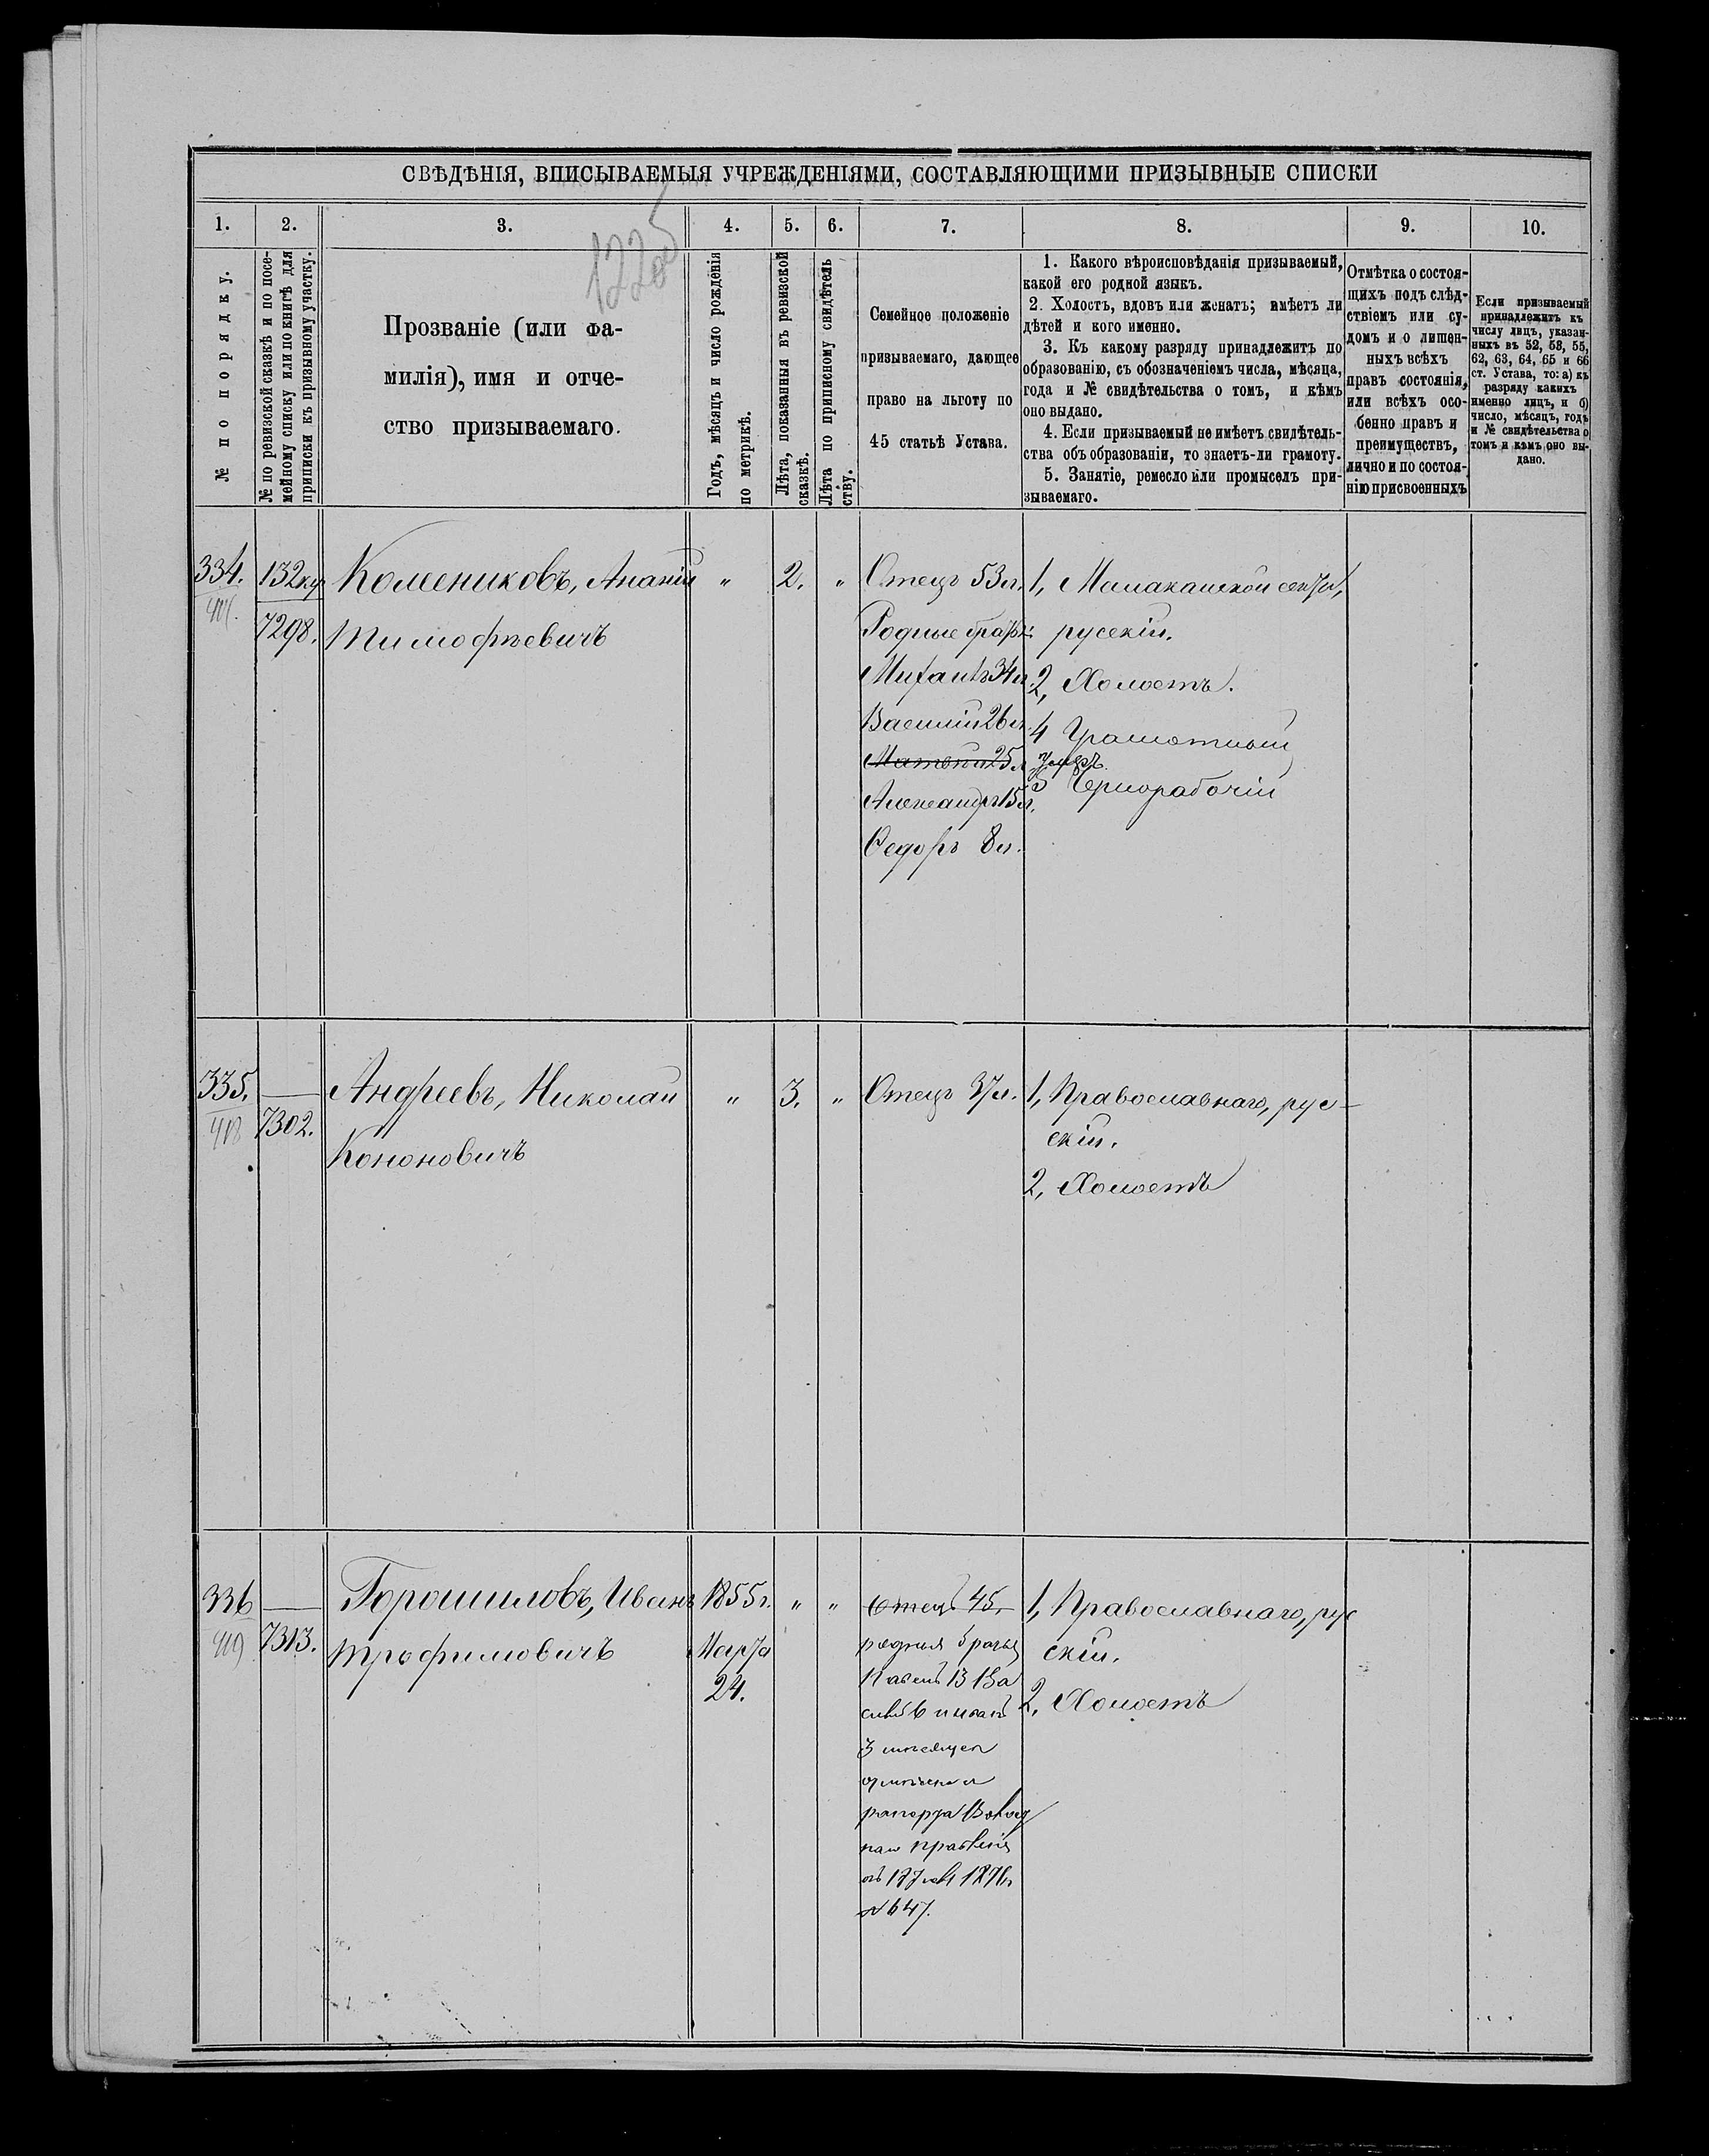 СВѢДѢНІЯ, ВПИСЫВАЕМЫЯ УЧРЕЖДЕНІЯМИ, СОСТАВЛЯЮЩИМИ ПРИЗЫВНЫЕ СПИСКИ
1. 2. 3. 4. 5. 6. 7. 8. 9. 10.
№ по порядку.
№ по ревизской сказкѣ и по посе-
мейному списку или по книгѣ для
приписки къ призывному участку.
Прозваніе (или фа-
милія), имя и отче-
ство призываемаго.
Годъ, мѣсяцъ и число рожденія
по метрикѣ.
Лѣта, показанныя въ ревизской
сказкѣ.
Лѣта по приписному свидѣтель
ству.
Семейное положеніе
призываемаго, дающее
право на льготу по
45 статьѣ Устава.
1. Какого вѣроисповѣданія призываемый,
какой его родной языкъ.
2. Холостъ, вдовъ или женатъ; имѣетъ ли
дѣтей и кого именно.
3. Къ какому разряду принадлежитъ по
образованію, съ обозначеніемъ числа, мѣсяца,
года и № свидѣтельства о томъ, и кѣмъ
оно выдано.
4. Если призываемый не имѣетъ свидѣтель-
ства объ образованіи, то знаетъ-ли грамоту.
5. Занятіе, ремесло или промыселъ при-
зываемаго.
Отмѣтка о состоя-
щихъ подъ слѣд-
ствіемъ или су-
домъ и о лишен-
ныхъ всѣхъ
правъ состоянія,
или всѣхъ осо-
бенно правъ и
преимуществъ,
лично и по состоя-
нію присвоенныхъ
Если призываемый
принадлежитъ къ
числу лицъ, указан-
ныхъ въ 52, 53, 55,
62, 63, 64, 65 и 66
ст. Устава, то: а) къ
разряду какихъ
именно лицъ, и б)
число, мѣсяцъ, годъ
и № свидѣтельства о
томъ и кѣмъ оно вы-
дано.
334.
132 куп
7298.
Колесниковъ, Ананій
Тимофѣевичъ
"
2.
"
Отецъ 53 л.
Родные братья:
Михаилъ 34 л.
Василій 26 л.
Матвѣй 25 л
Александръ 15 л.
Федоръ 8 л.
1, Малаканской секты,
русскій.
2, Холостъ.
4 Грамотный
умеръ.
5 Чернорабочій
335.
418
7302.
Андреевъ, Николай
Кононовичъ
"
3.
"
Отецъ 37 л.
1, Православнаго, рус-
скій.
2, Холостъ
336
419
7313.
Горошиловъ, Иванъ
Трофимовичъ
1855 г.
Марта
24.
"
"
Отецъ 45.
родныя братья
Павелъ 13 Ва
силій 6 и Иванъ
3 мѣсяцев
рапорта Волост
наго правленія
№ 647.
1, Православнаго, рус
скій.
2, Холостъ